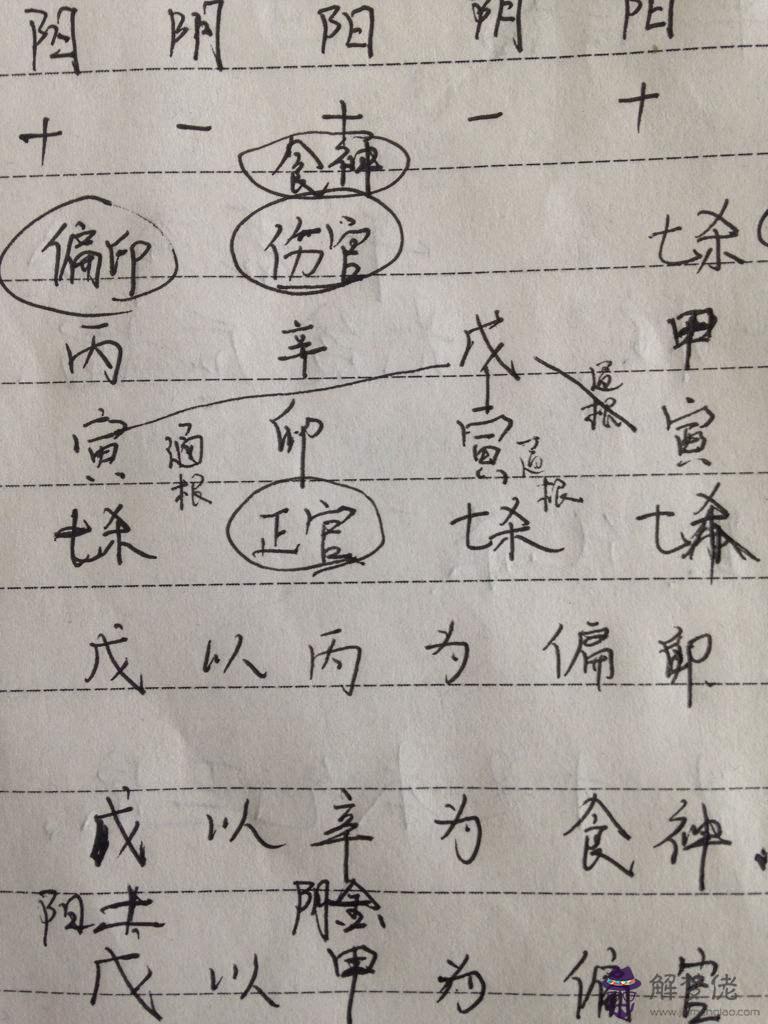 阳 阴 阳 阴 阳
+ - + - +
食神
偏印 伤官 七杀
丙 辛 戊 甲
通根
寅 卯 寅 寅
通根 通根
七杀 正官 七杀 七杀
戊 以 丙 为 偏 印
戊 以 辛 为 食 神.
阳土 阴金
戊 以 甲 为 偏 官
解梦佬